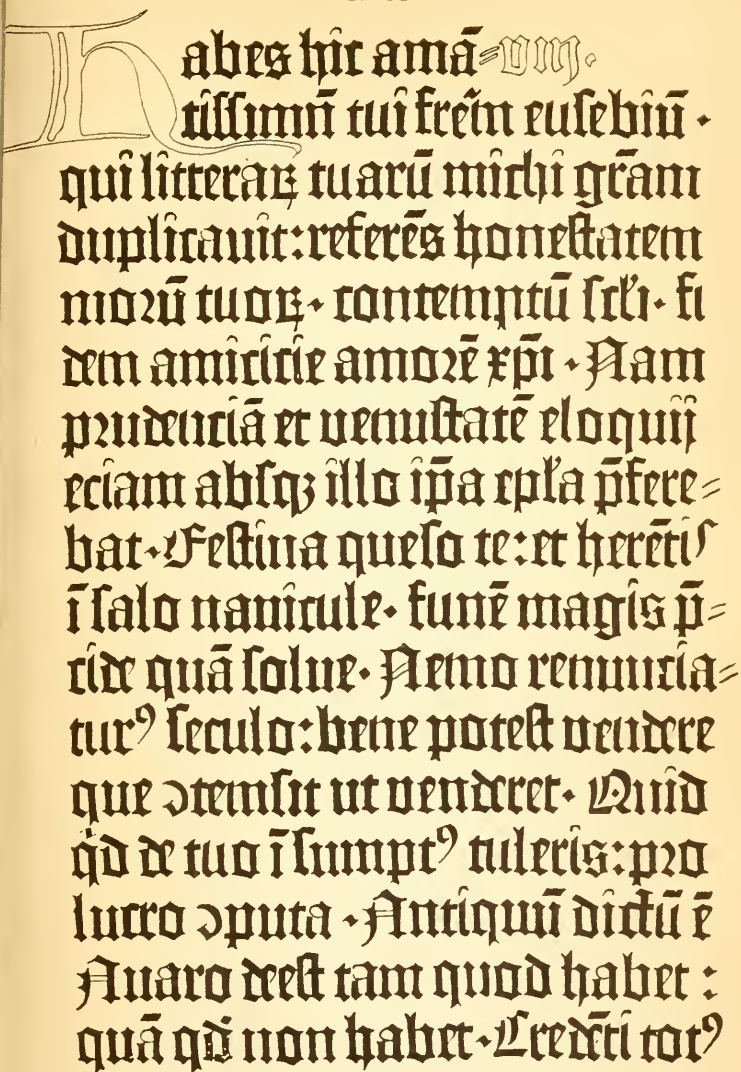 Habes hic amā⸗ viij.
tissimū tui frēm eusebiū ·
qui litterarꝝ tuarū michi grā̄m
duplicauit: referēs honestatem
morū tuoꝝ · contemptū scl̓i · fi
dem amicicie amorē xp̄i · Nam
prudenciā et uenustatē eloquij
eciam absqꝫ illo ip̄a epl̓a p̄fere⸗
bat · Festina queso te: et herētis
ī salo nauicule · funē magis p̄⸗
cide quā solue · Nemo renuncia⸗
turꝰ seculo: bene potest uendere
que ꝯtemsit ut uenderet · Quid
qd̄ de tuo ī sumptꝰ tuleris: pro
lucro ꝯputa · Antiquū dictū ē
Auaro deest tam quod habet:
quā qd̄ non habet · Credēti totꝰ